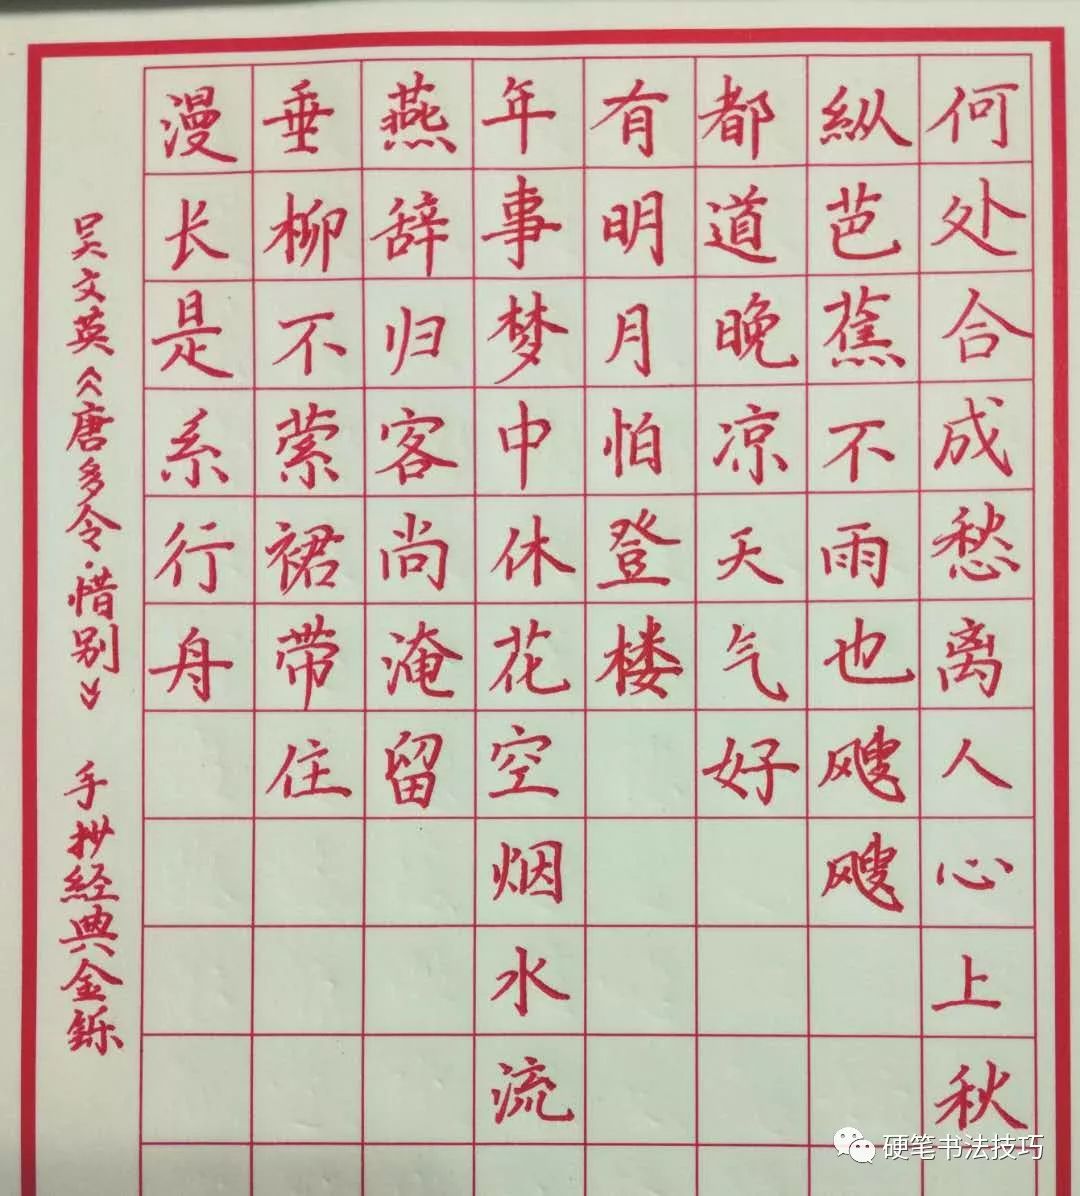 何处合成愁离人心上秋
纵芭蕉不雨也飕飕
都道晚凉天气好
有明月怕登楼
年事梦中休花空烟水流
燕辞归客尚淹留
垂柳不萦裙带住
漫长是系行舟
吴文英《唐多令·惜别》 手抄經典金鑠
硬笔书法技巧